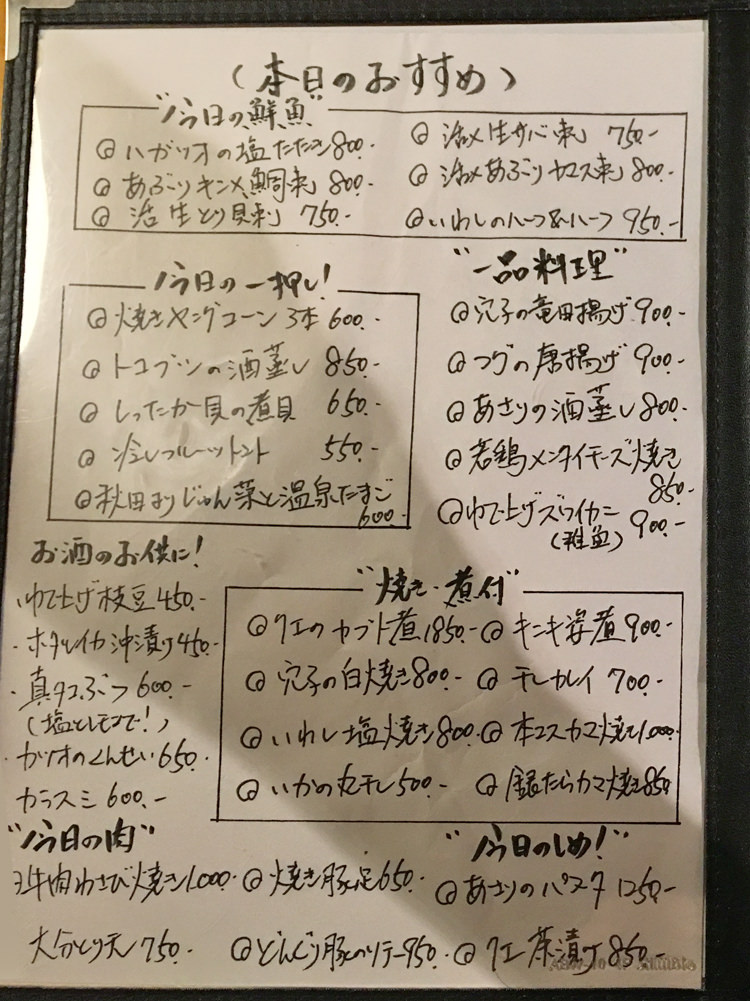 (本日のおすすめ)
"今日の鮮魚"
@ ハガツオの塩たたき 800.-
@ あぶりキンメ鯛刺し 800.-
@ 活 生とり貝刺し 750.-
@ 活〆生サバ刺し 750.-
@ 活〆あぶりカマス刺し 800.-
@ いわしのハーフ&ハーフ 950.-
"今日の一押し!
@ 焼きヤングコーン 3本 600.-
@ トコブシの酒蒸し 850.-
@ しったか貝の煮貝 650.-
@ 冷しフルーツトマト 550.-
@ 秋田まりじゅん菜と温泉たまご
600.-
"一品料理"
@ 穴子の竜田揚げ 900.-
@ フグの唐揚げ 900.-
@ あさりの酒蒸し 800.-
@ 若鶏メンタイチーズ焼き
850.-
@ ゆで上げズワイカニ
(雌魚) 900.-
お酒のお供に!
ゆで上げ枝豆 450.-
・ホタルイカ沖漬け 450.-
・真タコぶつ 600.-
(塩とレモンで!)
・カツオのくんせい 650.-
カラスミ 600.-
"焼き・煮付"
@ クエのカブト煮 1850.-
@ キンキ姿煮 900.-
@ 穴子の白焼き 800.-
@ 干しカレイ 700.-
@ いわし塩焼き 800.-
@ 本マスカマ焼き 1.000.-
@ いかの丸干し 500.-
@ 銀だらカマ焼き 850.-
"今日の肉"
牛肉わさび焼き 1.000.-
@ 焼き豚足 650.-
大分とり天 750.-
@ どんぐり豚のソテー 950.-
"今日のしめ!"
@ あさりのパスタ 1250.-
@ クエ茶漬け 850.-